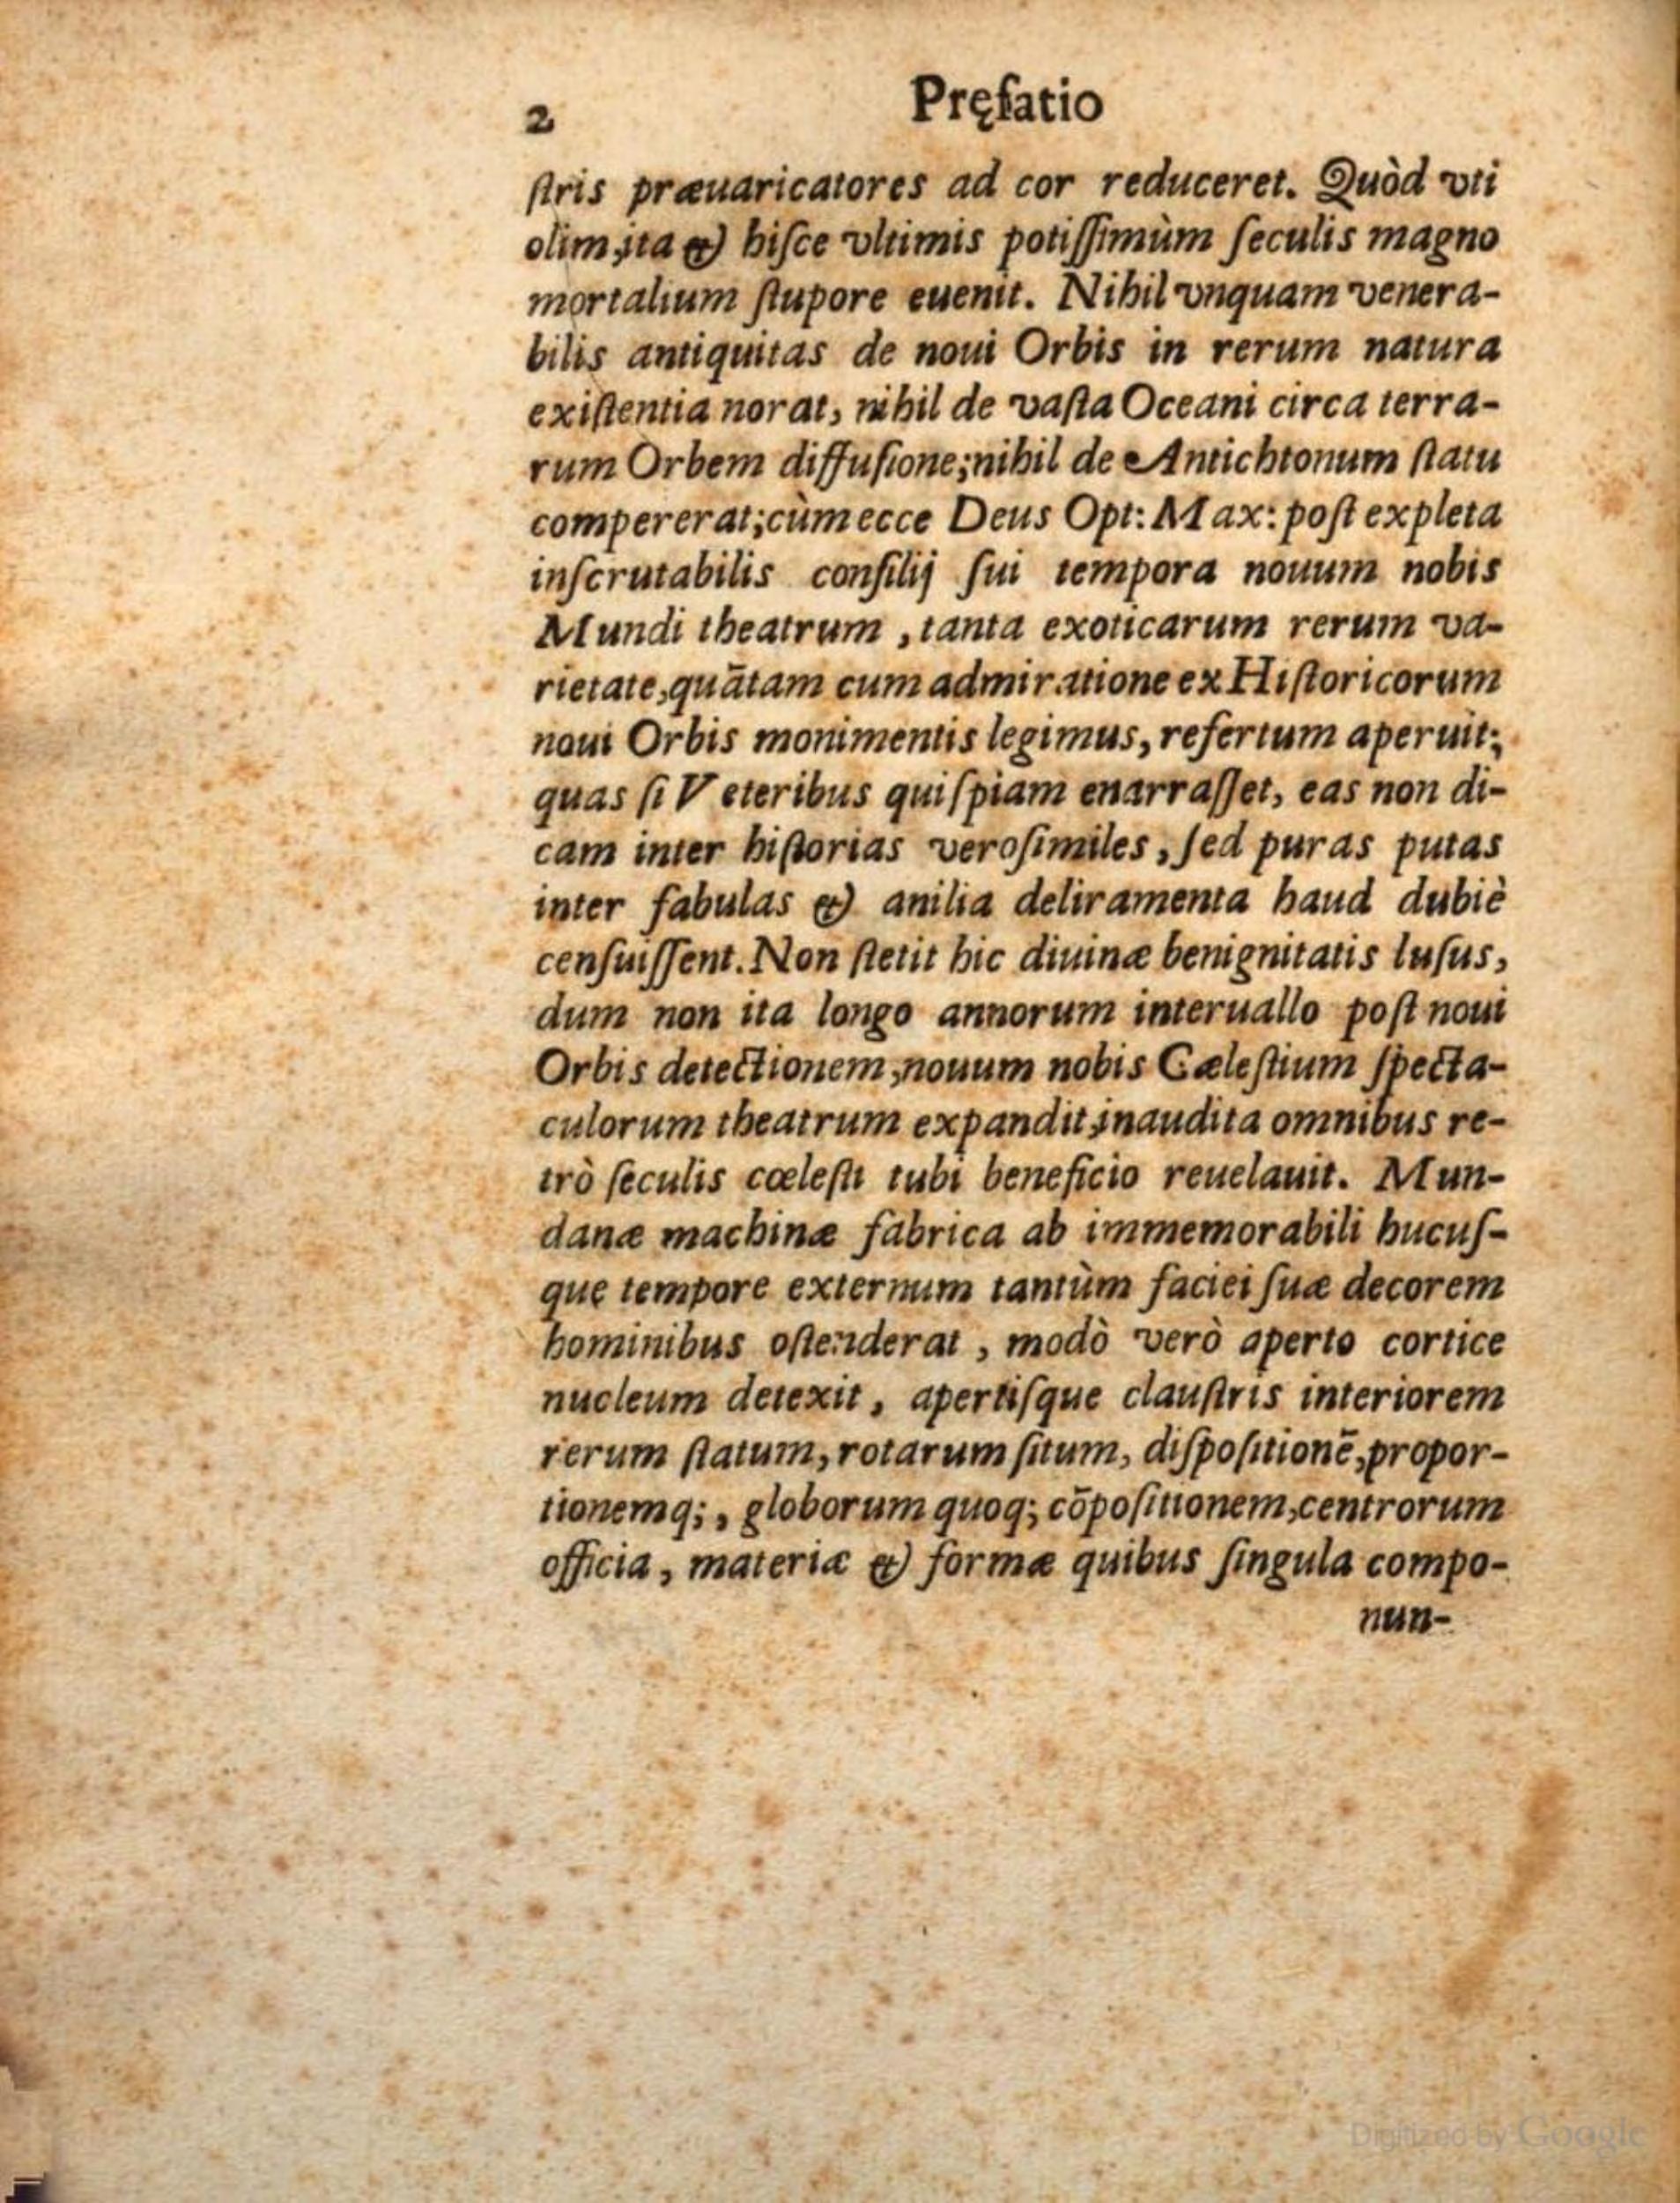 2
Pręfatio
ſtris præuaricatores ad cor reduceret. Quòd vti
olim, ita & hiſce vltimis potiſſimùm ſeculis magno
mortalium ſtupore euenit. Nihil vnquam venera-
bilis antiquitas de noui Orbis in rerum natura
exiſtentia norat, nihil de vaſta Oceani circa terra-
rum Orbem diffuſione; nihil de Antichtonum ſtatu
compererat; cùm ecce Deus Opt: Max: poſt expleta
inſcrutabilis conſilij ſui tempora nouum nobis
Mundi theatrum, tanta exoticarum rerum va-
rietate, quãtam cum admiratione ex Hiſtoricorum
noui Orbis monimentis legimus, refertum aperuit;
quas ſi Veteribus quiſpiam enarraſſet, eas non di-
cam inter hiſtorias veroſimiles, ſed puras putas
inter fabulas & anilia deliramenta haud dubiè
cenſuiſſent. Non ſtetit hic diuinæ benignitatis luſus,
dum non ita longo annorum interuallo poſt noui
Orbis detectionem, nouum nobis Cæleſtium ſpecta-
culorum theatrum expandit, inaudita omnibus re-
trò ſeculis cœleſti tubi beneficio reuelauit. Mun-
danæ machinæ fabrica ab immemorabili hucuſ-
que tempore externum tantùm faciei ſuæ decorem
hominibus oſtenderat, modò verò aperto cortice
nucleum detexit, apertiſque clauſtris interiorem
rerum ſtatum, rotarum ſitum, diſpoſitionẽ, propor-
tionemq;, globorum quoq; cõpoſitionem, centrorum
officia, materiæ & formæ quibus ſingula compo-
nun-
Digitized by Google